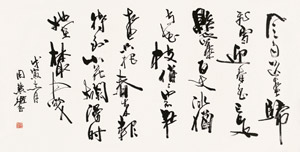 风雨送春归
飛雪迎春到已是
懸崖百丈冰猶
有花枝俏俏也不争
春只把春来報
待到山花爛漫時
她在叢中笑
戊寅
周慧珺